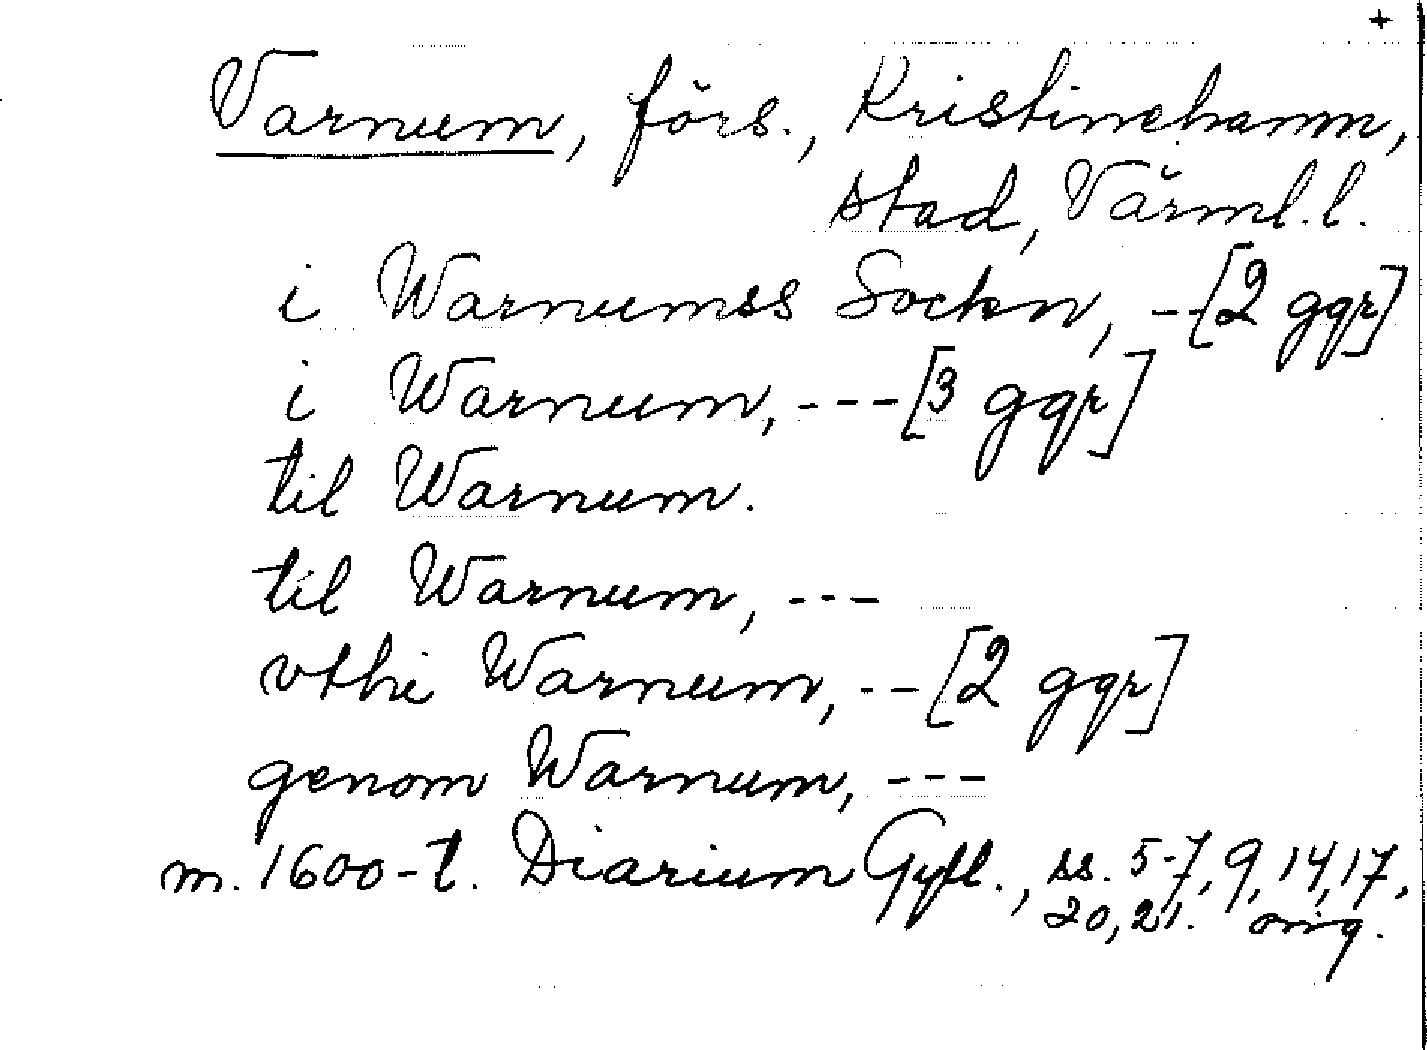 +
Varnum, förs., Kristinehamn,
stad, Värml. l.
i Warnumss Sockn, --[2 ggr]
i Warnum, ---[3 ggr]
til Warnum.
til Warnum, ---
vthi Warnum, --[2 ggr]
genom Warnum, ---
m. 1600-t. Diarium Gyll., ss. 5-7, 9, 14, 17,
20, 21. orig.